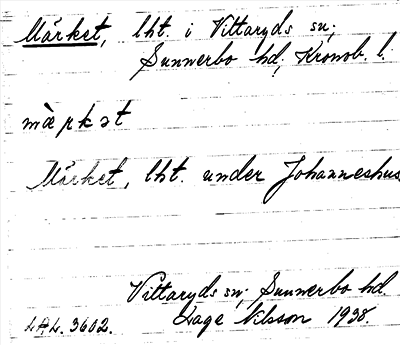 Märket, lht. i Vittaryds sn;
Sunnerbo hd; Kronob. l.
mæ̀rkət
Märket, lht. under Johanneshus
Vittaryds sn; Sunnerbo hd
LAL. 3602. Aage Nilsson 1938